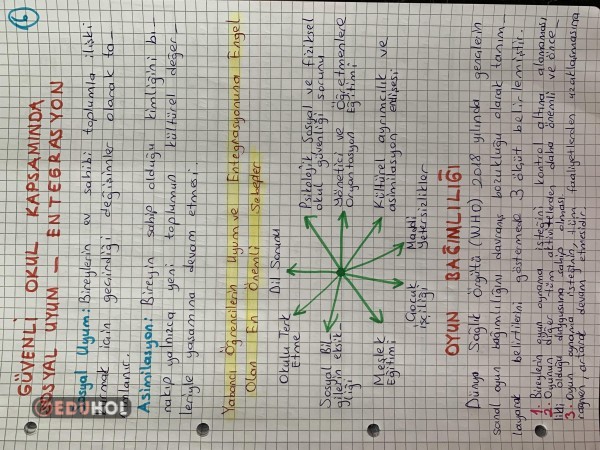 6
GÜVENLİ OKUL KAPSAMINDA
SOSYAL UYUM – ENTEGRASYON
Sosyal Uyum: Bireylerin ev sahibi toplumla ilişki
kurmak için geçirdiği değişimler olarak ta-
nımlanır.
Asimilasyon: Bireyin sahip olduğu kimliğini bı-
rakıp yalnızca yeni toplumun kültürel değer-
leriyle yaşamına devam etmesi.
Yabancı Öğrencilerin Uyum ve Entegrasyonuna Engel
Olan En Önemli Sebepler
Okulu Terk
Etme
Dil Sorunu
Psikolojik Sosyal ve fiziksel
okul güvenliği sorunu
Sosyal Bil-
gilerin eksik-
liği
Yönetici ve Öğretmenlere
Oryantasyon Eğitimi
Meslek
Eğitimi
Çocuk
işçiliği
Maddi
Yetersizlikler
Kültürel ayrımcılık ve
asimilasyon endişesi
OYUN BAĞIMLILIĞI
Dünya Sağlık Örgütü (WHO) 2018 yılında gençlerin
sanal oyun bağımlılığını davranış bozukluğu olarak tanım-
layarak belirtilerini göstermede 3 ölçüt belirlemiştir.
1. Bireylerin oyun oynama isteğini kontrol altına alamaması
2. Oyunun diğer tüm aktivitelerden daha önemli ve önce-
likli olduğu duygusuna sahip olması
3. Oyun oynama isteğinin, tüm faaliyetlerden uzaklaşmasına
rağmen, artarak devam etmesidir.
EDUHOL